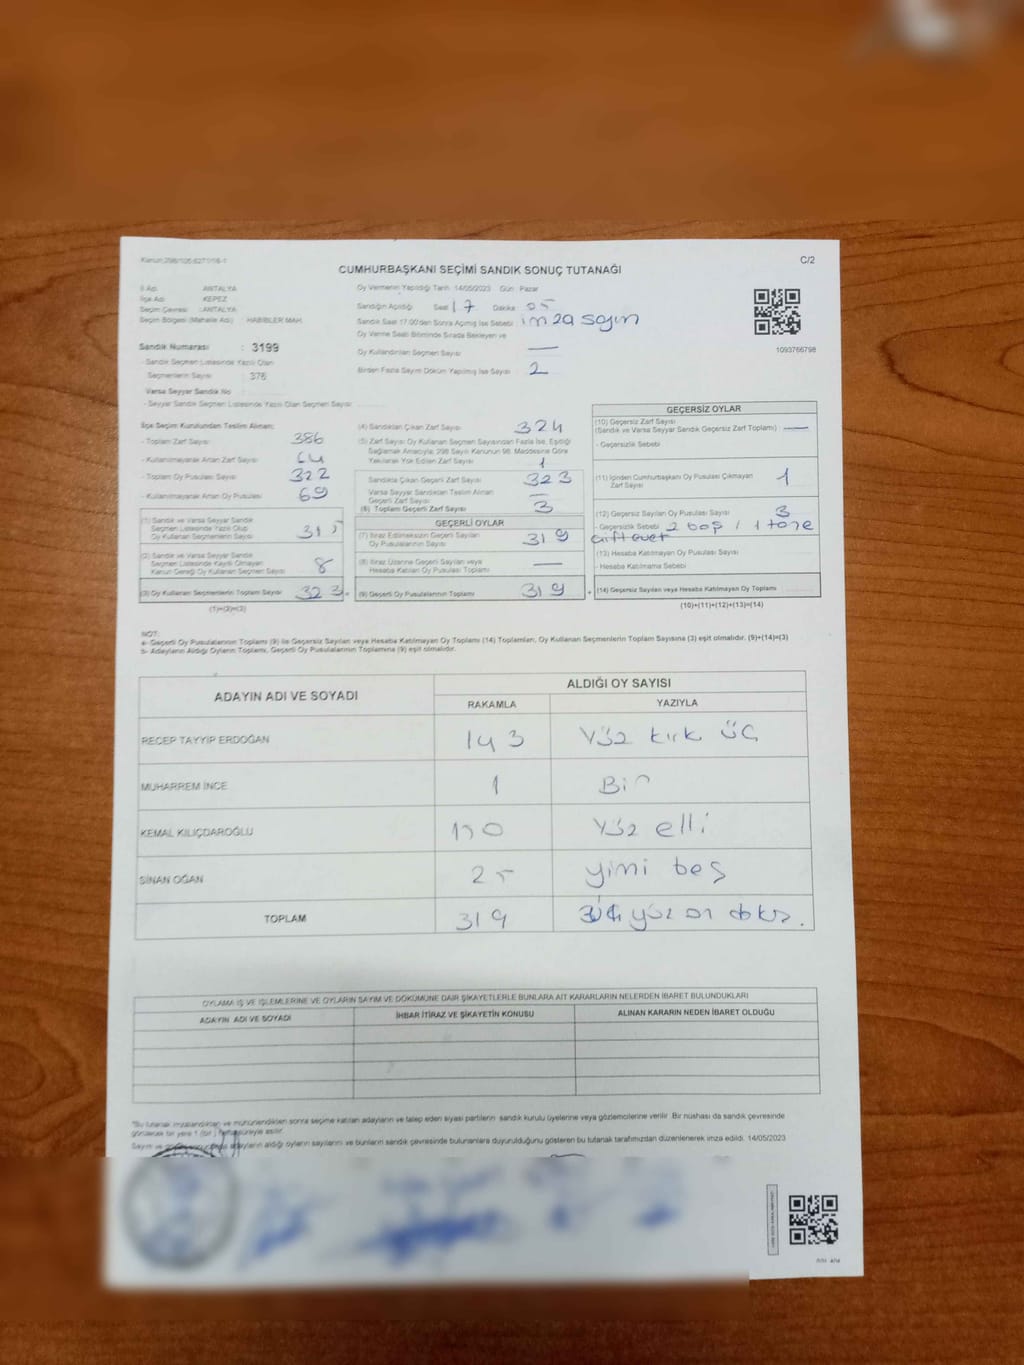 Kanun:298/105,6271/16-1
C/2
CUMHURBAŞKANI SEÇİMİ SANDIK SONUÇ TUTANAĞI
İl Adı : ANTALYA
İlçe Adı : KEPEZ
Seçim Çevresi : ANTALYA
Seçim Bölgesi (Mahalle Adı) : HABİBLER MAH.
Sandık Numarası : 3199
- Sandık Seçmen Listesinde Yazılı Olan
Seçmenlerin Sayısı : 376
Varsa Seyyar Sandık No
- Seyyar Sandık Seçmen Listesinde Yazılı Olan Seçmen Sayısı
Oy Vermenin Yapıldığı Tarih :14/05/2023 Gün : Pazar
Sandığın Açıldığı Saat 17 Dakika 05
Sandık Saat 17.00'den Sonra Açılmış İse Sebebi : imza sayın
Oy Verme Saati Bitiminde Sırada Bekleyen ve
Oy Kullandırılan Seçmen Sayısı —
Birden Fazla Sayım Döküm Yapılmış İse Sayısı : 2
1093766798
İlçe Seçim Kurulundan Teslim Alınan;
- Toplam Zarf Sayısı 386
- Kullanılmayarak Artan Zarf Sayısı 64
- Toplam Oy Pusulası Sayısı 322
- Kullanılmayarak Artan Oy Pusulası 69
(1) Sandık ve Varsa Seyyar Sandık
Seçmen Listesinde Yazılı Olup
Oy Kullanan Seçmenlerin Sayısı 315
(2) Sandık ve Varsa Seyyar Sandık
Seçmen Listesinde Kayıtlı Olmayan
Kanun Gereği Oy Kullanan Seçmen Sayısı 8
(3) Oy Kullanan Seçmenlerin Toplam Sayısı 323 =
(1)+(2)=(3)
(4) Sandıktan Çıkan Zarf Sayısı 324
(5) Zarf Sayısı Oy Kullanan Seçmen Sayısından Fazla İse, Eşitliği
Sağlamak Amacıyla; 298 Sayılı Kanunun 98. Maddesine Göre
Yakılarak Yok Edilen Zarf Sayısı 1
Sandıkta Çıkan Geçerli Zarf Sayısı 323
Varsa Seyyar Sandıktan Teslim Alınan
Geçerli Zarf Sayısı —
(6) Toplam Geçerli Zarf Sayısı 3
GEÇERLİ OYLAR
(7) İtiraz Edilmeksizin Geçerli Sayılan
Oy Pusulalarının Sayısı 319
(8) İtiraz Üzerine Geçerli Sayılan veya
Hesaba Katılan Oy Pusulası Toplamı —
(9) Geçerli Oy Pusulalarının Toplamı 319 +
GEÇERSİZ OYLAR
(10) Geçersiz Zarf Sayısı
(Sandık ve Varsa Seyyar Sandık Geçersiz Zarf Toplamı) : —
- Geçersizlik Sebebi
(11) İçinden Cumhurbaşkanı Oy Pusulası Çıkmayan
Zarf Sayısı 1
(12) Geçersiz Sayılan Oy Pusulası Sayısı 3
- Geçersizlik Sebebi 2 boş / 1 tane
çift evet
(13) Hesaba Katılmayan Oy Pusulası Sayısı
- Hesaba Katılmama Sebebi
(14) Geçersiz Sayılan veya Hesaba Katılmayan Oy Toplamı
(10)+(11)+(12)+(13)=(14)
NOT:
a- Geçerli Oy Pusulalarının Toplamı (9) ile Geçersiz Sayılan veya Hesaba Katılmayan Oy Toplamı (14) Toplamları, Oy Kullanan Seçmenlerin Toplam Sayısına (3) eşit olmalıdır. (9)+(14)=(3)
b- Adayların Aldığı Oyların Toplamı, Geçerli Oy Pusulalarının Toplamına (9) eşit olmalıdır.
ADAYIN ADI VE SOYADI
ALDIĞI OY SAYISI
RAKAMLA YAZIYLA
RECEP TAYYİP ERDOĞAN 143 Yüz kırk üç
MUHARREM İNCE 1 Bir
KEMAL KILIÇDAROĞLU 150 Yüz elli
SİNAN OĞAN 25 yimi beş
TOPLAM 319 yüz on
OYLAMA İŞ VE İŞLEMLERİNE VE OYLARIN SAYIM VE DÖKÜMÜNE DAİR ŞİKAYETLERLE BUNLARA AİT KARARLARIN NELERDEN İBARET BULUNDUKLARI
ADAYIN ADI VE SOYADI İHBAR İTİRAZ VE ŞİKAYETİN KONUSU ALINAN KARARIN NEDEN İBARET OLDUĞU
"Bu tutanak imzalandıktan ve mühürlendikten sonra seçime katılan adayların ve talep eden siyasi partilerin sandık kurulu üyelerine veya gözlemcilerine verilir. Bir nüshası da sandık çevresinde
görülecek bir yere 1 (bir) hafta süreyle asılır.
adayların aldığı oyların sayılarını ve bunların sandık çevresinde bulunanlara duyurulduğunu gösteren bu tutanak tarafımızdan düzenlenerek imza edildi. 14/05/2023